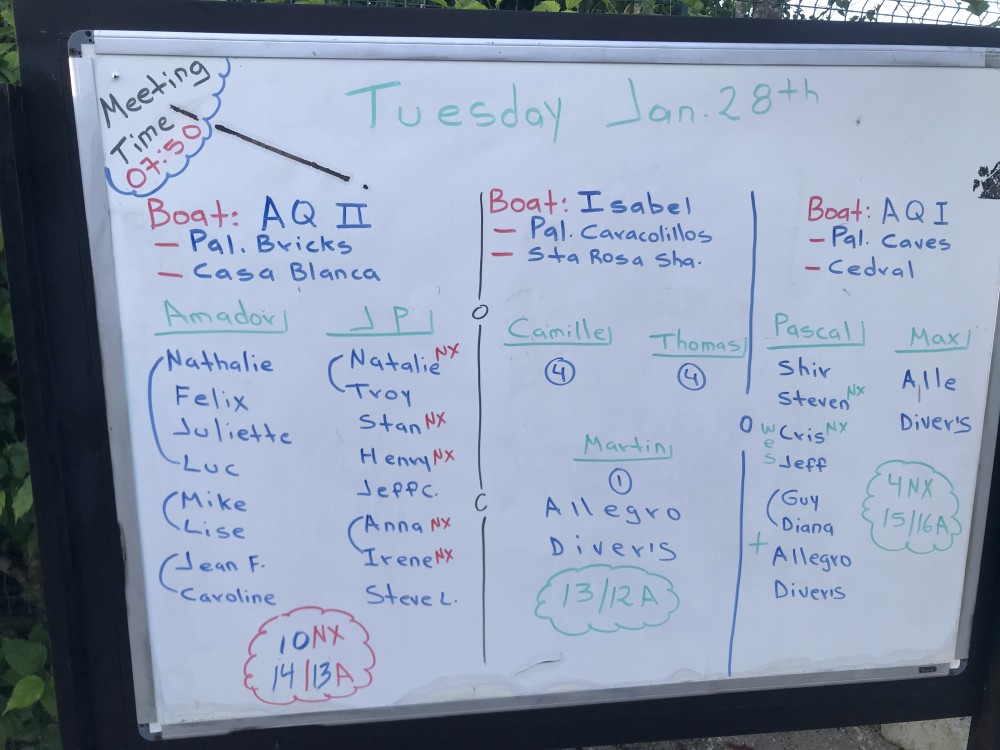 Meeting
Time
07:50
Tuesday Jan. 28th
Boat: AQ II
- Pal. Bricks
- Casa Blanca
Amador
Nathalie
Felix
Juliette
Luc
Mike
Lise
Jean F.
Caroline
J P
Natalie NX
Troy
Stan NX
Henry NX
Jeff C.
Anna NX
Irene NX
Steve L.
10 NX
14/13A
O
C
Boat: Isabel
- Pal. Caracolillos
- Sta Rosa Sha.
Camille
4
Thomas
4
Martin
1
Allegro
Diver's
13/12A
O
Boat: AQ I
- Pal. Caves
- Cedral
Pascal
Shir
Steven NX
Wes
Cris NX
Jeff
Guy
Diana
+ Allegro
Diver's
Max
Alle
Diver's
4NX
15/16A